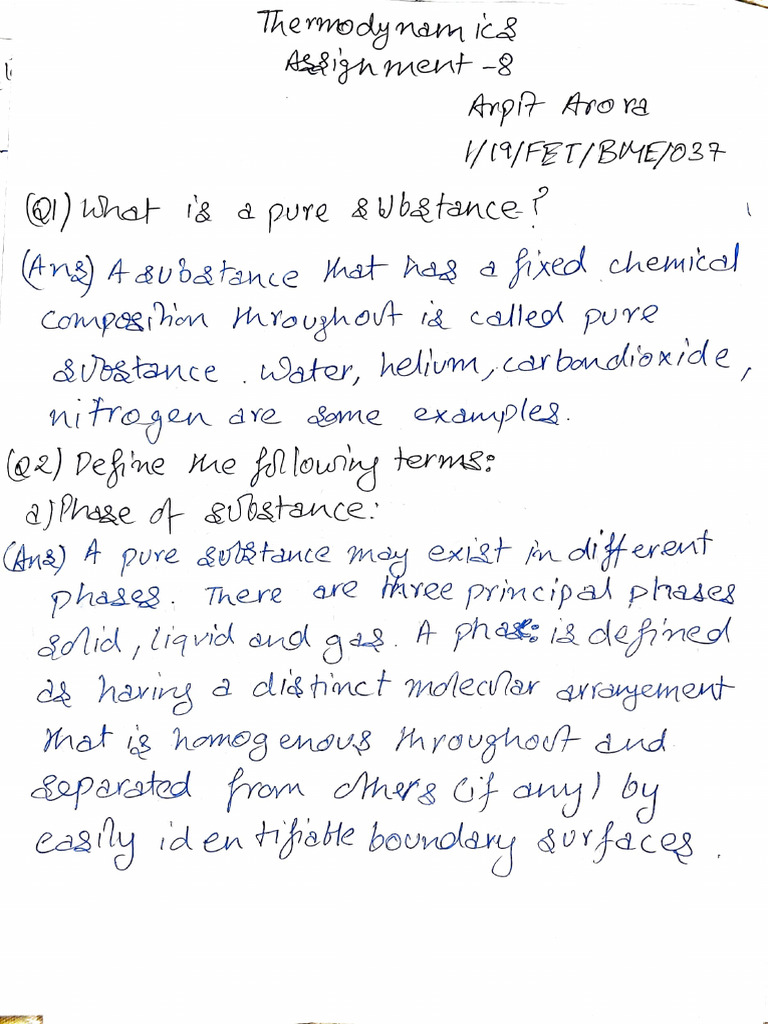 Thermodynamics
Assignment -8
Arpit Arora
1/19/FET/BME/037
(Q1) What is a pure substance?
(Ans) A substance that has a fixed chemical
composition throughout is called pure
substance. Water, helium, carbondioxide,
nitrogen are some examples.
(Q2) Define the following terms:
a) Phase of substance:
(Ans) A pure substance may exist in different
phases. There are three principal phases
solid, liquid and gas. A phase: is defined
as having a distinct molecular arrangement
that is homogenous throughout and
separated from others (if any) by
easily identifiable boundary surfaces.